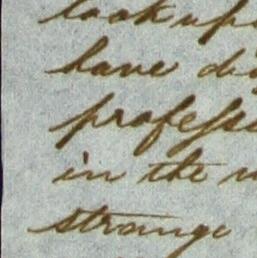 look up
have di
profess
in the
strange